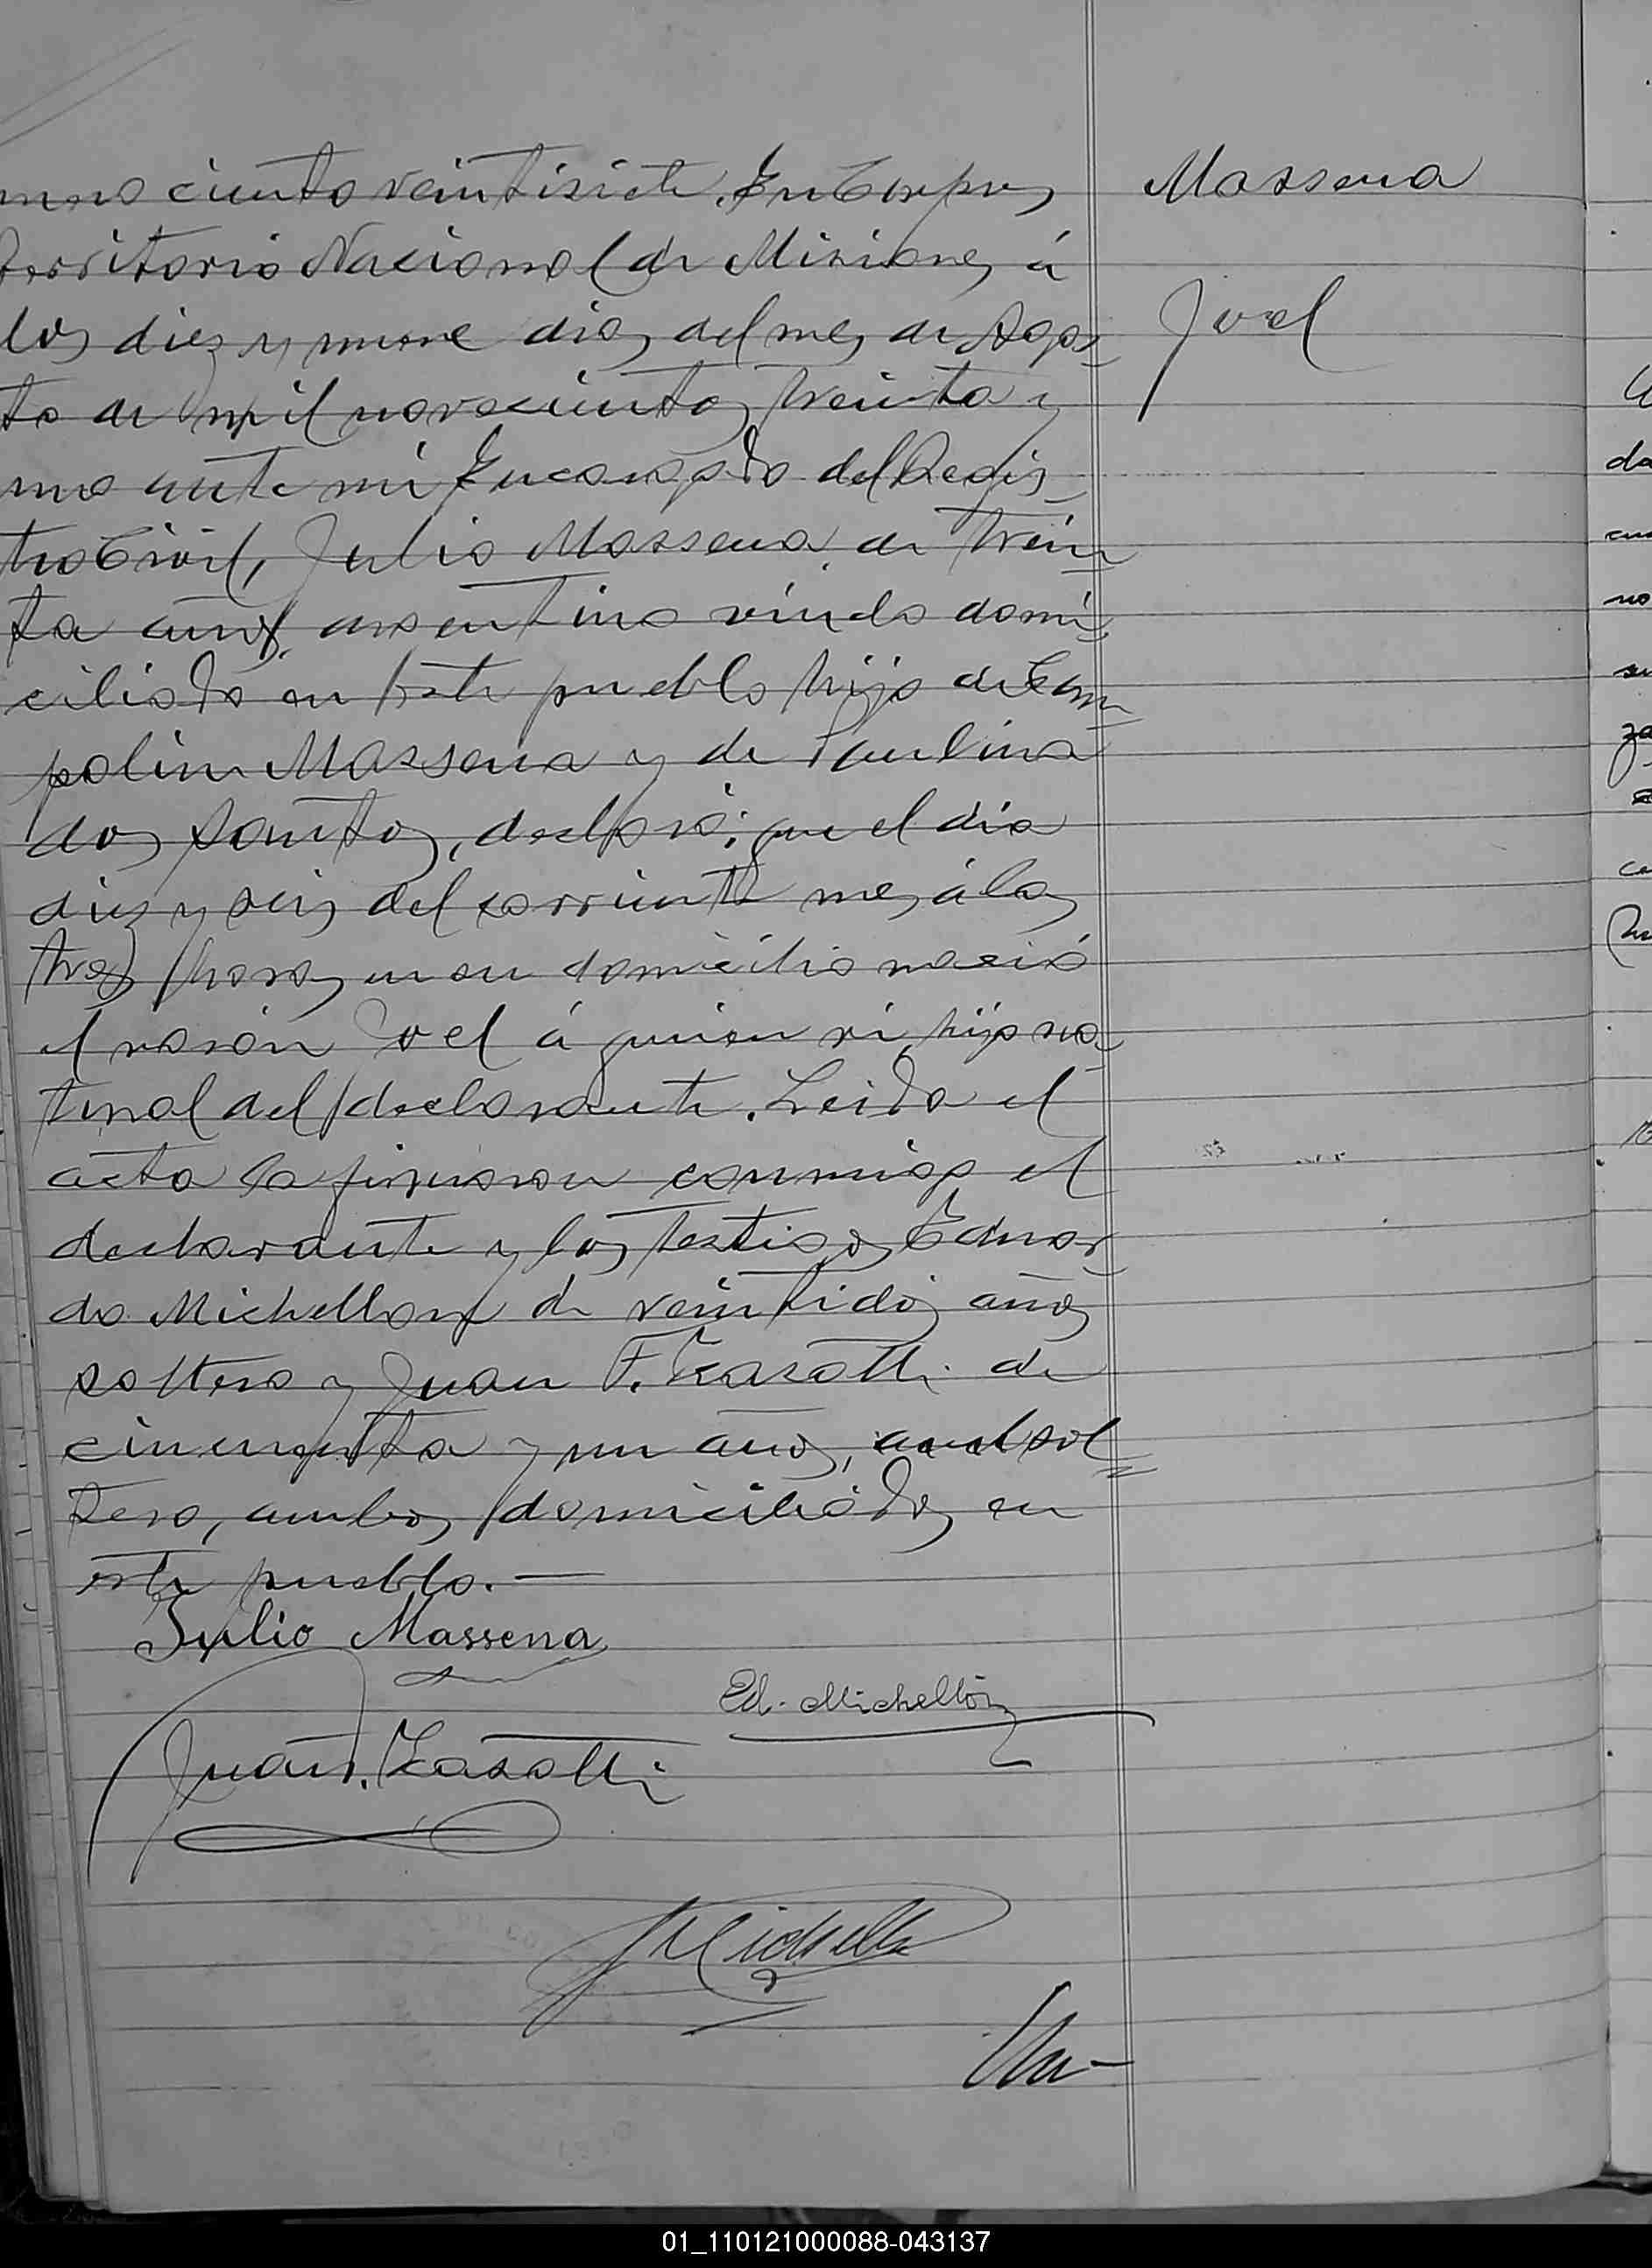 mero ciento veintisiete. En Corpus, Massena
Territorio Nacional de Misiones, á
los diez y nueve dias del mes de Agos- Joel
to de mil novecientos treinta y
uno ante mi Encargado del Regis-
tro Civil, Julio Massena de trein
ta años, argentino viudo domi-
ciliado en este pueblo hijo de
polin Massena y de Paulina
dos Santos, declaró: que el día
diez y seis del corriente mes á las
tres horas en su domicilio nació
el varón Joel á quien ví, hijo na-
tural del declarante. Leida el
acta la firmaron conmigo el
declarante y los testigos Eduar-
do Michellon de veintidós años
soltero y Juan F. Zasotti de
cincuenta y un años, sol=
tero, ambos domiciliados en
este pueblo.—
Julio Massena
Ed. Michellón
Juan F. Zasotti
Michellon
01_110121000088-043137